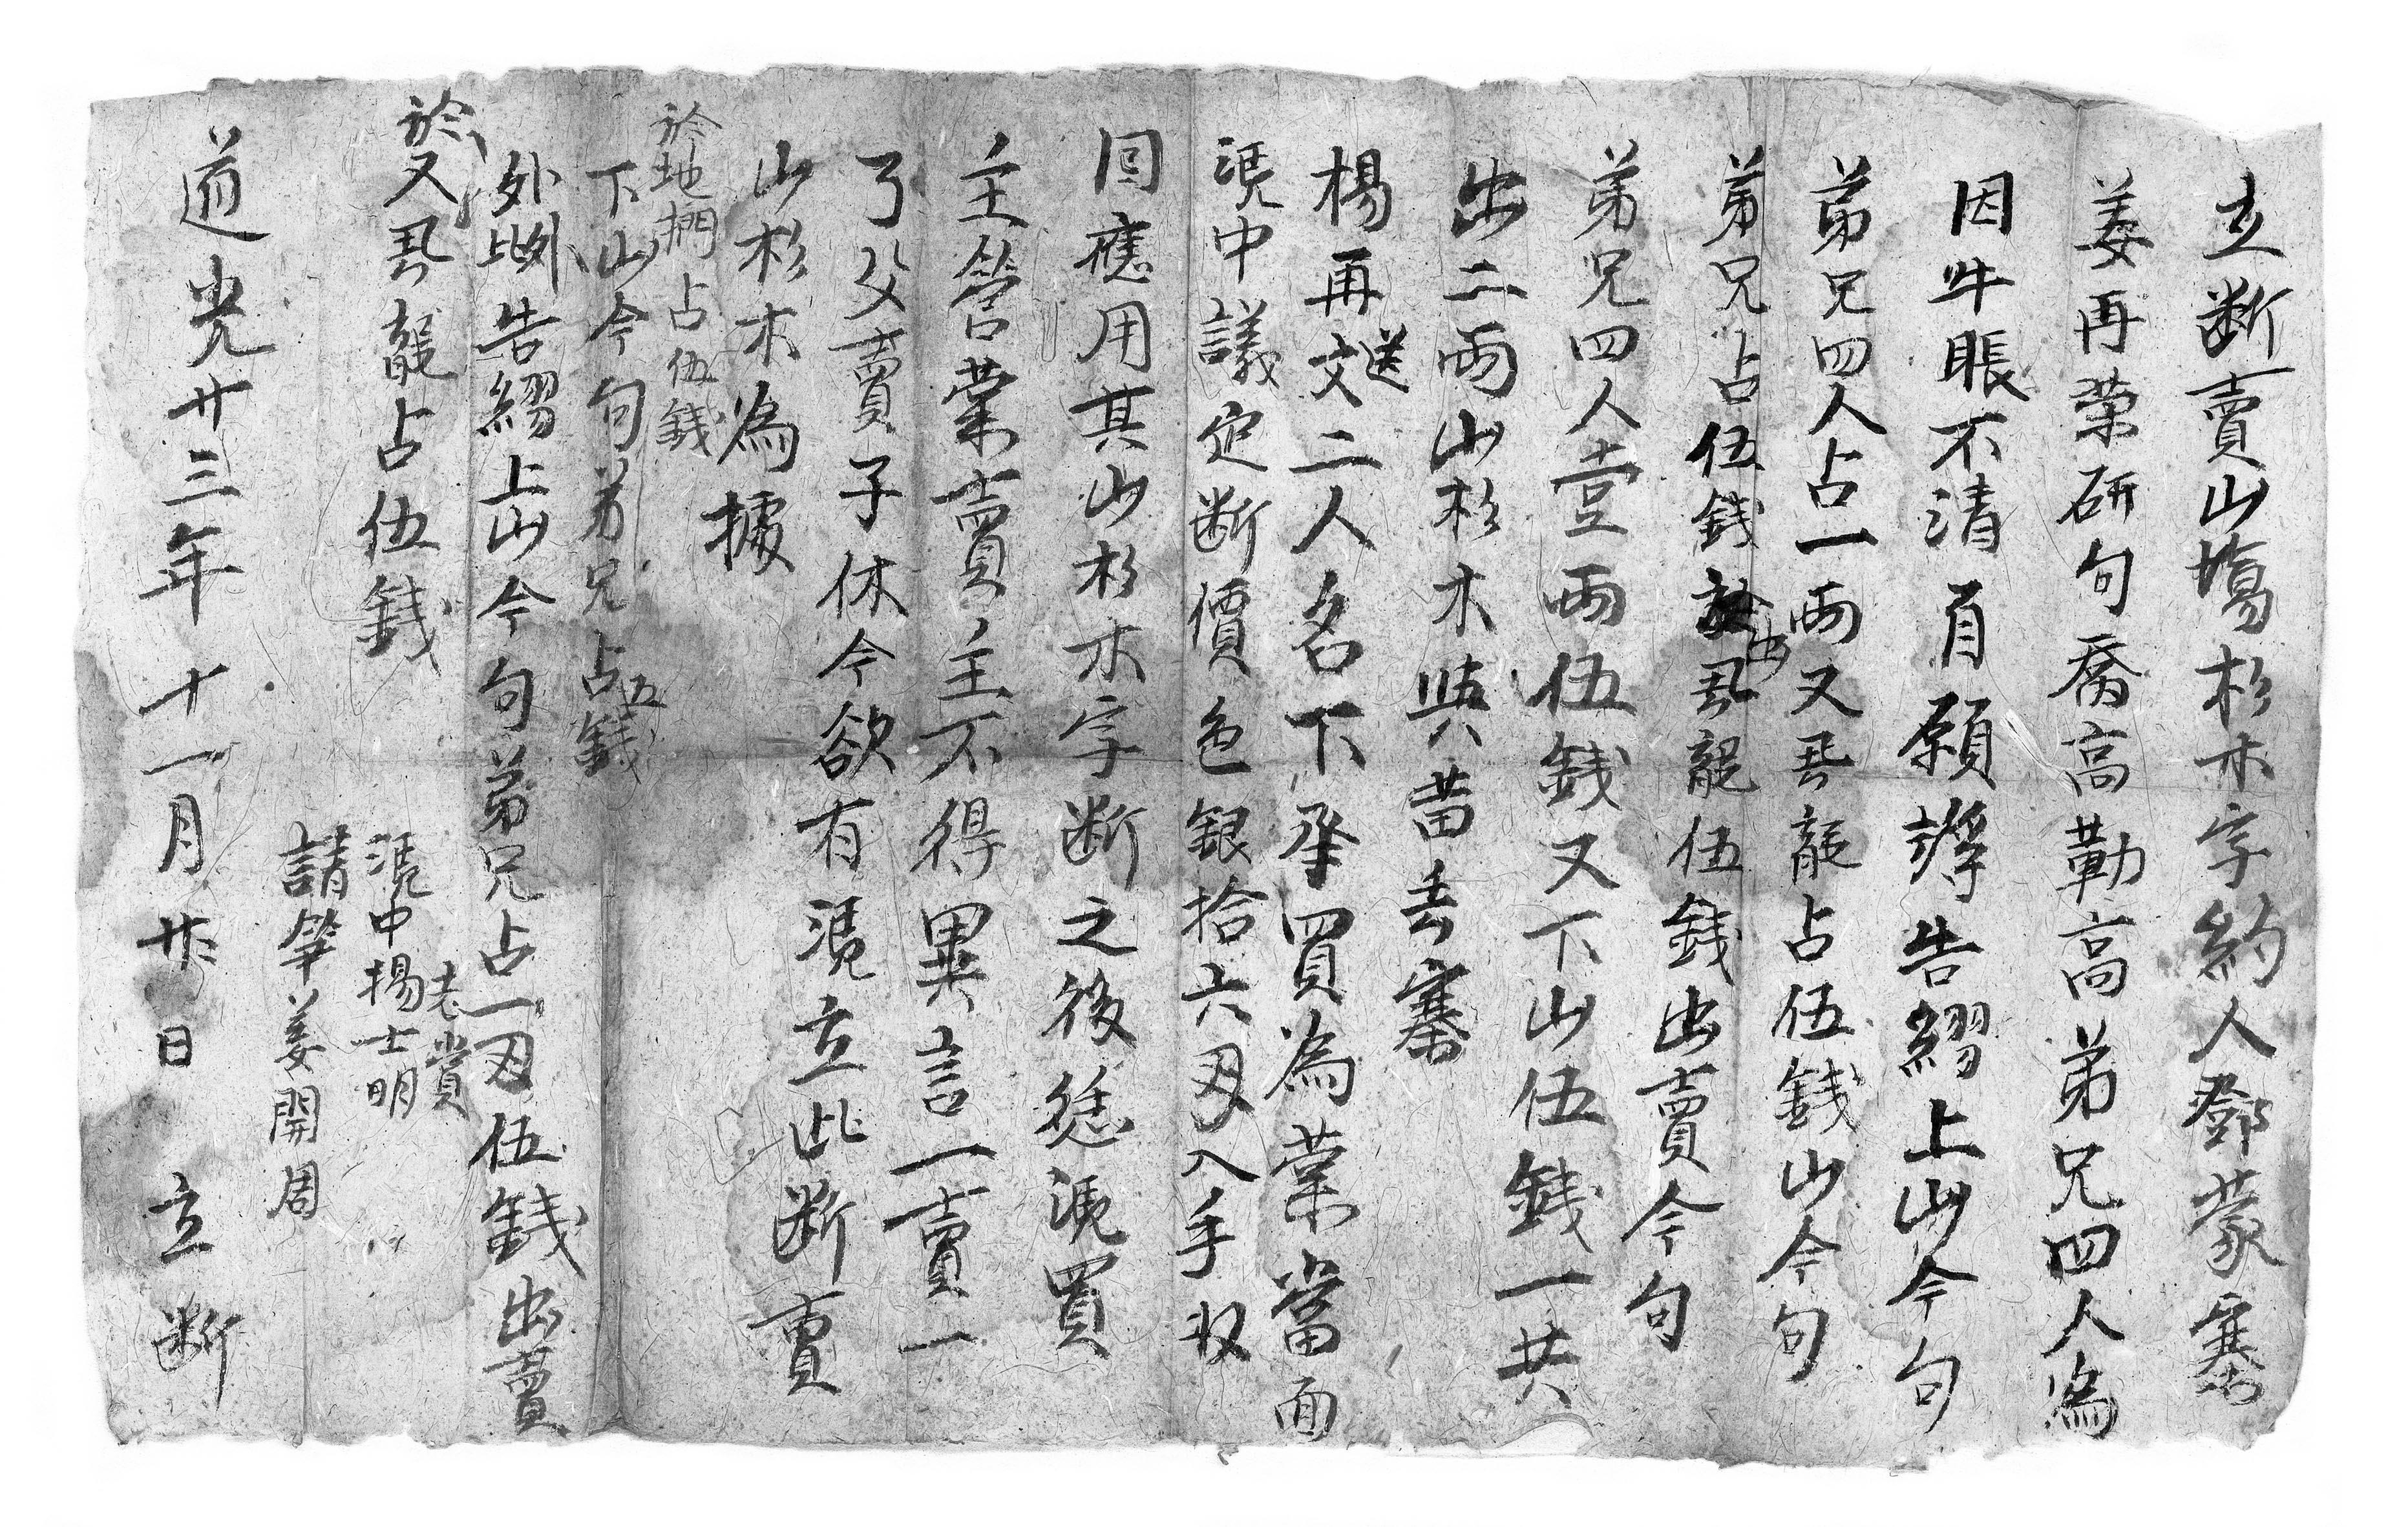 立断賣山塲杉木字約人鄧蒙寨
姜再荣研句喬高勒高弟兄四人為
因牛賬不清自愿将告繆上山今句
弟兄四人占一両又巩龍占伍錢山今句
弟兄占伍錢巩龍伍錢出賣今句
弟兄四人壹両伍錢又下山伍錢一共
出二両山杉木與苗丢寨
楊再文送二人名下承買為業當面
凴中議定断價色銀拾六刄入手収
回應用其山杉木字断之後恁凴買
主管業賣主不得異言一賣一
了父賣子休今欲有凴立此断賣
山杉木為據
於地搁占伍錢
下山今句弟兄占五錢
外批告繆上山今句弟兄占一刄伍錢出賣
於又巩龍占伍錢
老賞
凴中楊士明
請筆姜開周
道光廿三年十一月廿日立断